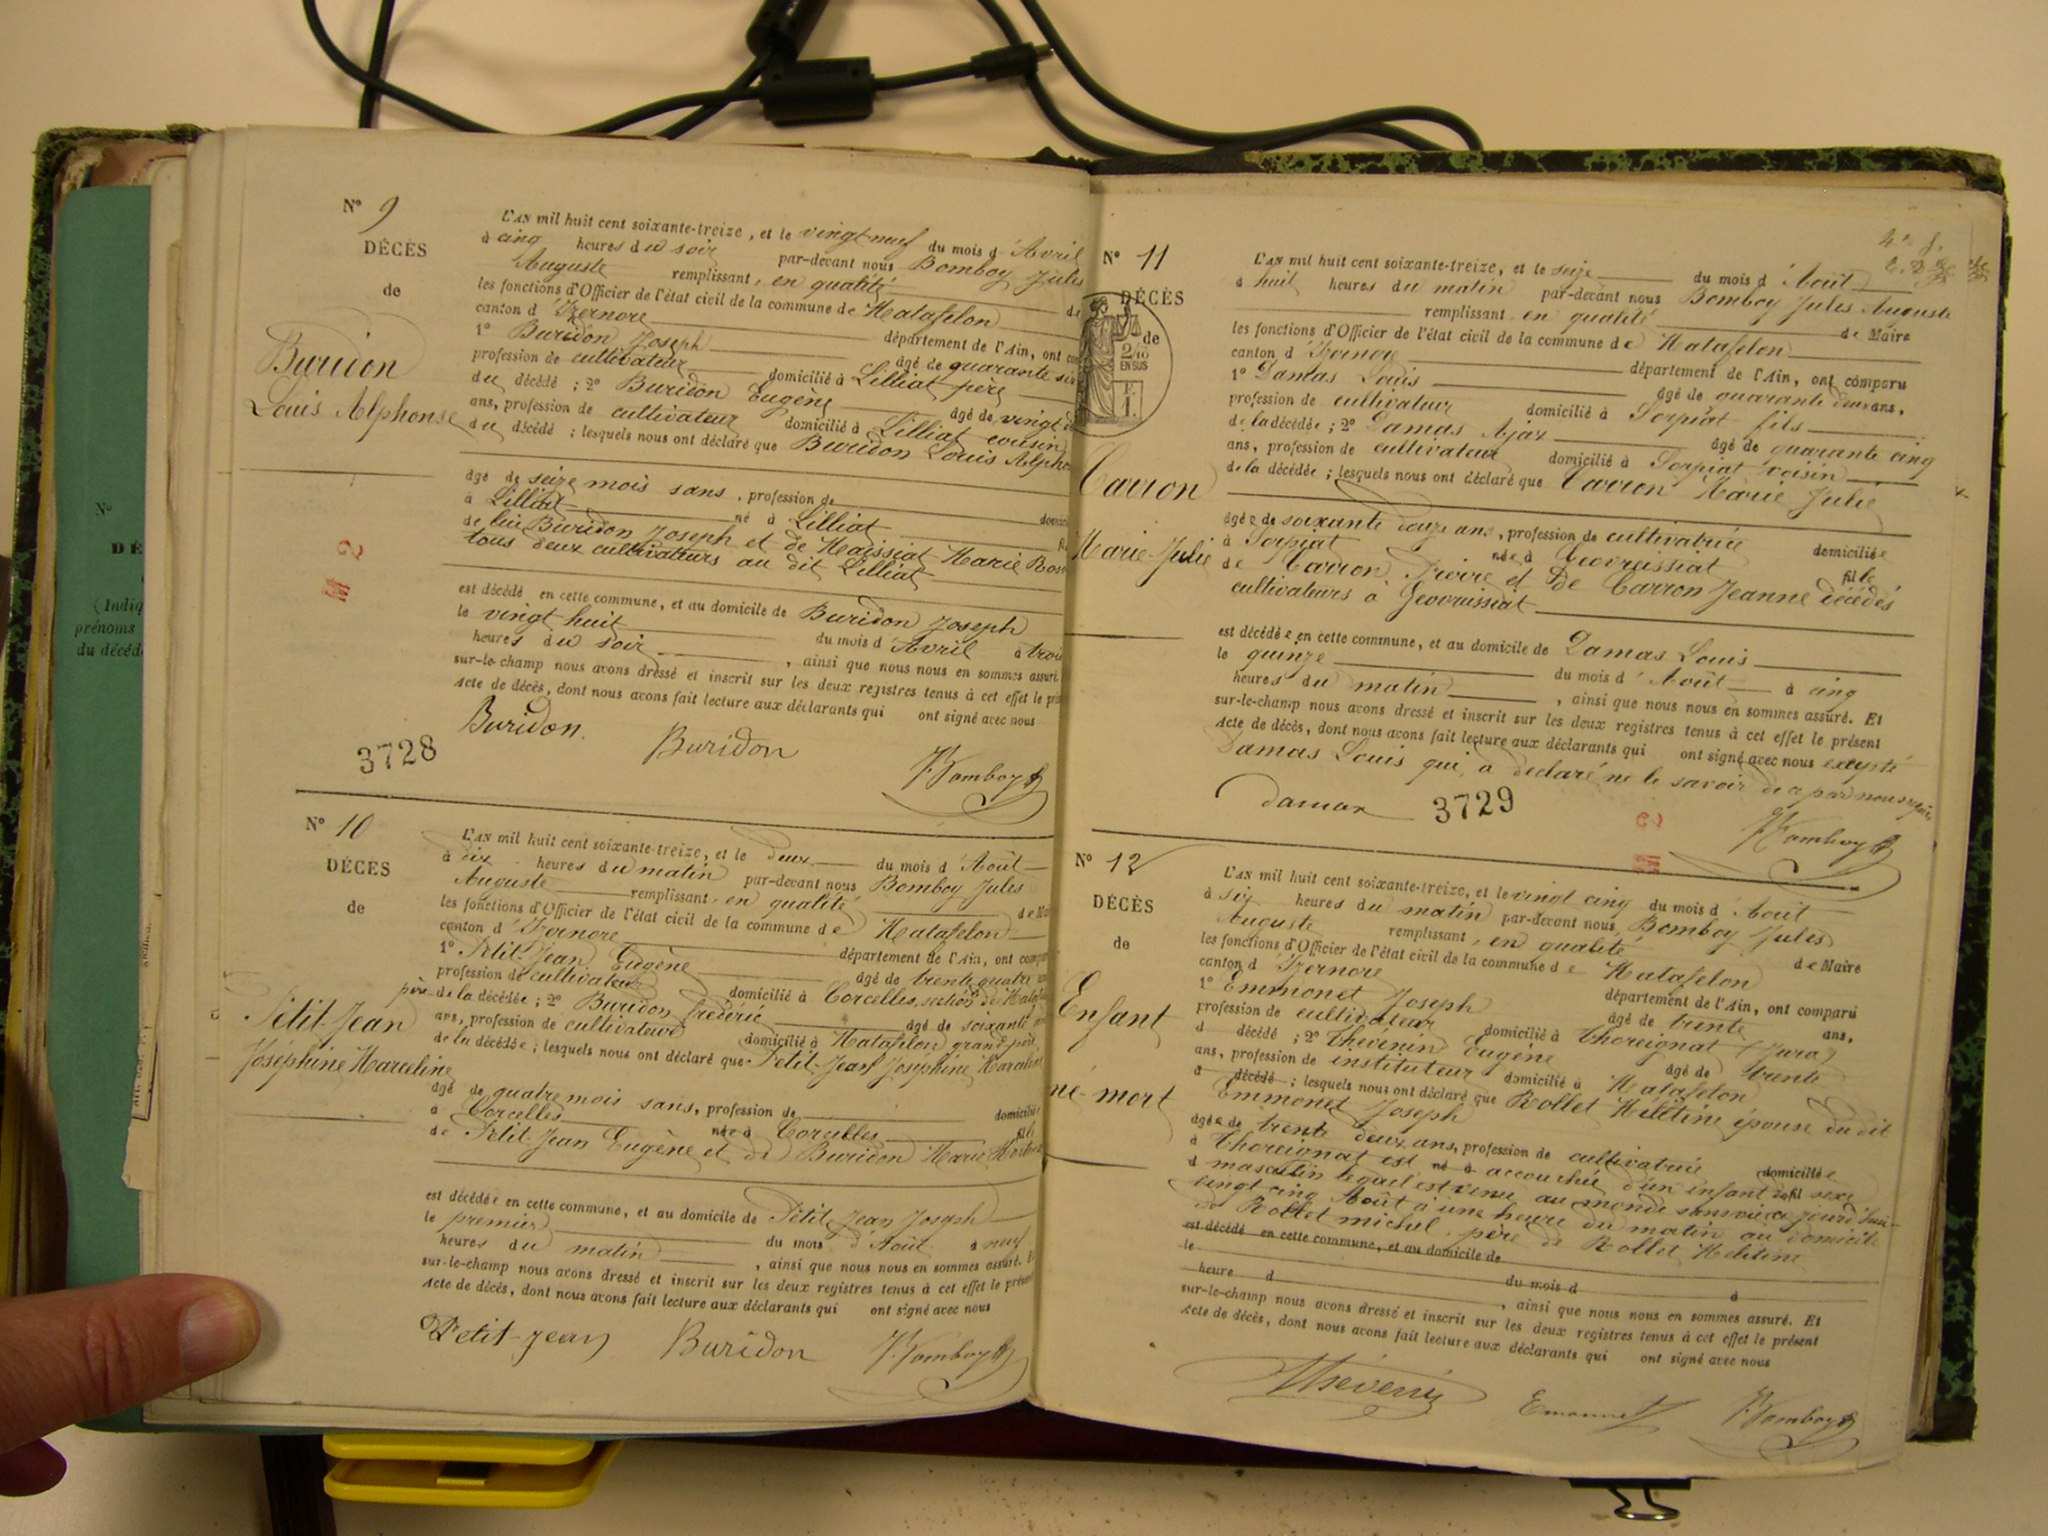 N° 9
DÉCÈS
de
Buridon
Louis Alphonse
L'AN mil huit cent soixante-treize, et le vingt neuf du mois d'Avril
à cinq heures du soir par-devant nous Bomboy Jules
Auguste remplissant, en qualité de
les fonctions d'Officier de l'état civil de la commune de Matafelon
canton d'Izernore département de l'Ain, ont
1° Buridon Joseph âgé de quarante six
profession de cultivateur domicilié à Lilliat père
du décédé ; 2° Buridon Eugène âgé de vingt
ans, profession de cultivateur domicilié à Lilliat cousin
du décédé ; lesquels nous ont déclaré que Buridon Louis Alpho
âgé de seize mois sans, profession de
à Lilliat né à Lilliat
de lui Buridon Joseph et de Maissiat Marie
tous deux cultivateurs au dit Lilliat
est décédé en cette commune, et au domicile de Buridon Joseph
le vingt huit du mois d'Avril à trois
heures du soir , ainsi que nous nous en sommes assuré.
sur-le-champ nous avons dressé et inscrit sur les deux registres tenus à cet effet le
Acte de décès, dont nous avons fait lecture aux déclarants qui ont signé avec nous
Buridon. Buridon Bomboy
3728
N° 10
DÉCÈS
de
Petit-Jean
Joséphine Marceline
L'AN mil huit cent soixante-treize, et le deux du mois d'Août
à dix heures du matin par-devant nous Bomboy Jules
Auguste remplissant, en qualité de
les fonctions d'Officier de l'état civil de la commune de Matafelon
canton d'Izernore département de l'Ain, ont
1° Petit-Jean Eugène âgé de trente quatre
profession de cultivateur domicilié à Corcelles section de
père de la décédée ; 2° Buridon frédéric âgé de soixante
ans, profession de cultivateur domicilié à Matafelon grand père
de la décédée ; lesquels nous ont déclaré que Petit-Jean Joséphine
âgé de quatre mois sans, profession de
à Corcelles née à Corcelles domiciliée
de Petit-Jean Eugène et de Buridon Marie
est décédée en cette commune, et au domicile de Petit Jean Joseph
le premier du mois d'Août à neuf
heures du matin , ainsi que nous nous en sommes assuré.
sur-le-champ nous avons dressé et inscrit sur les deux registres tenus à cet effet le présent
Acte de décès, dont nous avons fait lecture aux déclarants qui ont signé avec nous
Petit-Jean Buridon Bomboy
N° 11
DÉCÈS
de
2/10
EN SUS
Carron
Marie-Julie
L'AN mil huit cent soixante-treize, et le seize du mois d'Août
à huit heures du matin par-devant nous Bomboy Jules Auguste
remplissant, en qualité de Maire
les fonctions d'Officier de l'état civil de la commune de Matafelon
canton d'Izernore département de l'Ain, ont comparu
1° Damas Louis âgé de quarante deux ans,
profession de cultivateur domicilié à Sorpiat fils
de la décédée ; 2° Damas Ajax âgé de quarante cinq
ans, profession de cultivateur domicilié à Sorpiat voisin
de la décédée ; lesquels nous ont déclaré que Carron Marie Julie
âgée de soixante douze ans, profession de cultivatrice domiciliée
à Sorpiat née à Geovreissiat fille
de Carron Pierre et de Carron Jeanne décédés
cultivateurs à Geovreissiat
est décédée en cette commune, et au domicile de Damas Louis
le quinze du mois d'Août à cinq
heures du matin , ainsi que nous nous en sommes assuré. Et
sur-le-champ nous avons dressé et inscrit sur les deux registres tenus à cet effet le présent
Acte de décès, dont nous avons fait lecture aux déclarants qui ont signé avec nous excepté
Damas Louis qui a déclaré ne le savoir de ce par nous requis
damas 3729 Bomboy
N° 12
DÉCÈS
de
Enfant
né-mort
L'AN mil huit cent soixante-treize, et le vingt cinq du mois d'Août
à six heures du matin par-devant nous Bomboy Jules
Auguste remplissant, en qualité de Maire
les fonctions d'Officier de l'état civil de la commune de Matafelon
canton d'Izernore département de l'Ain, ont comparu
1° Emmonet Joseph âgé de trente ans,
profession de cultivateur domicilié à Thoreignat (Jura)
d décédé ; 2° Thevenin Eugène âgé de trente
ans, profession de instituteur domicilié à Matafelon
d décédé ; lesquels nous ont déclaré que Rollet Mélitine épouse du dit
Emmonet Joseph
âgée de trente deux ans, profession de cultivatrice domiciliée
à Thoreignat est né à accouchée d'un enfant du fil sexe
d masculin lequel est venu au monde sans vie ce jourd'hui
vingt cinq Août à une heure du matin au domicile
de Rollet michel père de Rollet Mélitine
est décédé en cette commune, et au domicile de
le du mois d à
heure d , ainsi que nous nous en sommes assuré. Et
sur-le-champ nous avons dressé et inscrit sur les deux registres tenus à cet effet le présent
Acte de décès, dont nous avons fait lecture aux déclarants qui ont signé avec nous
Thévenin Emonnet Bomboy